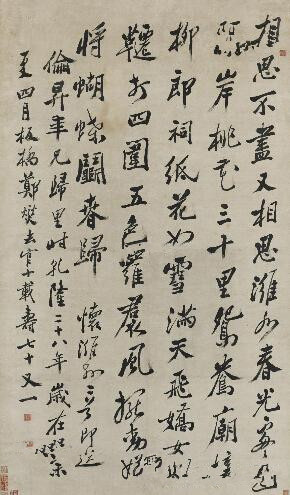 相思不盡又相思濰水春光處〻遲
隔岸桃花三十里鴛鴦廟接
柳郎祠紙花如雪滿天飛嬌女鞦
韆打四圍五色羅裙風擺動好
將蝴蝶鬭春歸 懷濰縣二首即送
倫昇年兄歸里時乾隆二十八年歲在癸未
夏四月板橋鄭燮去官十載壽七十又一